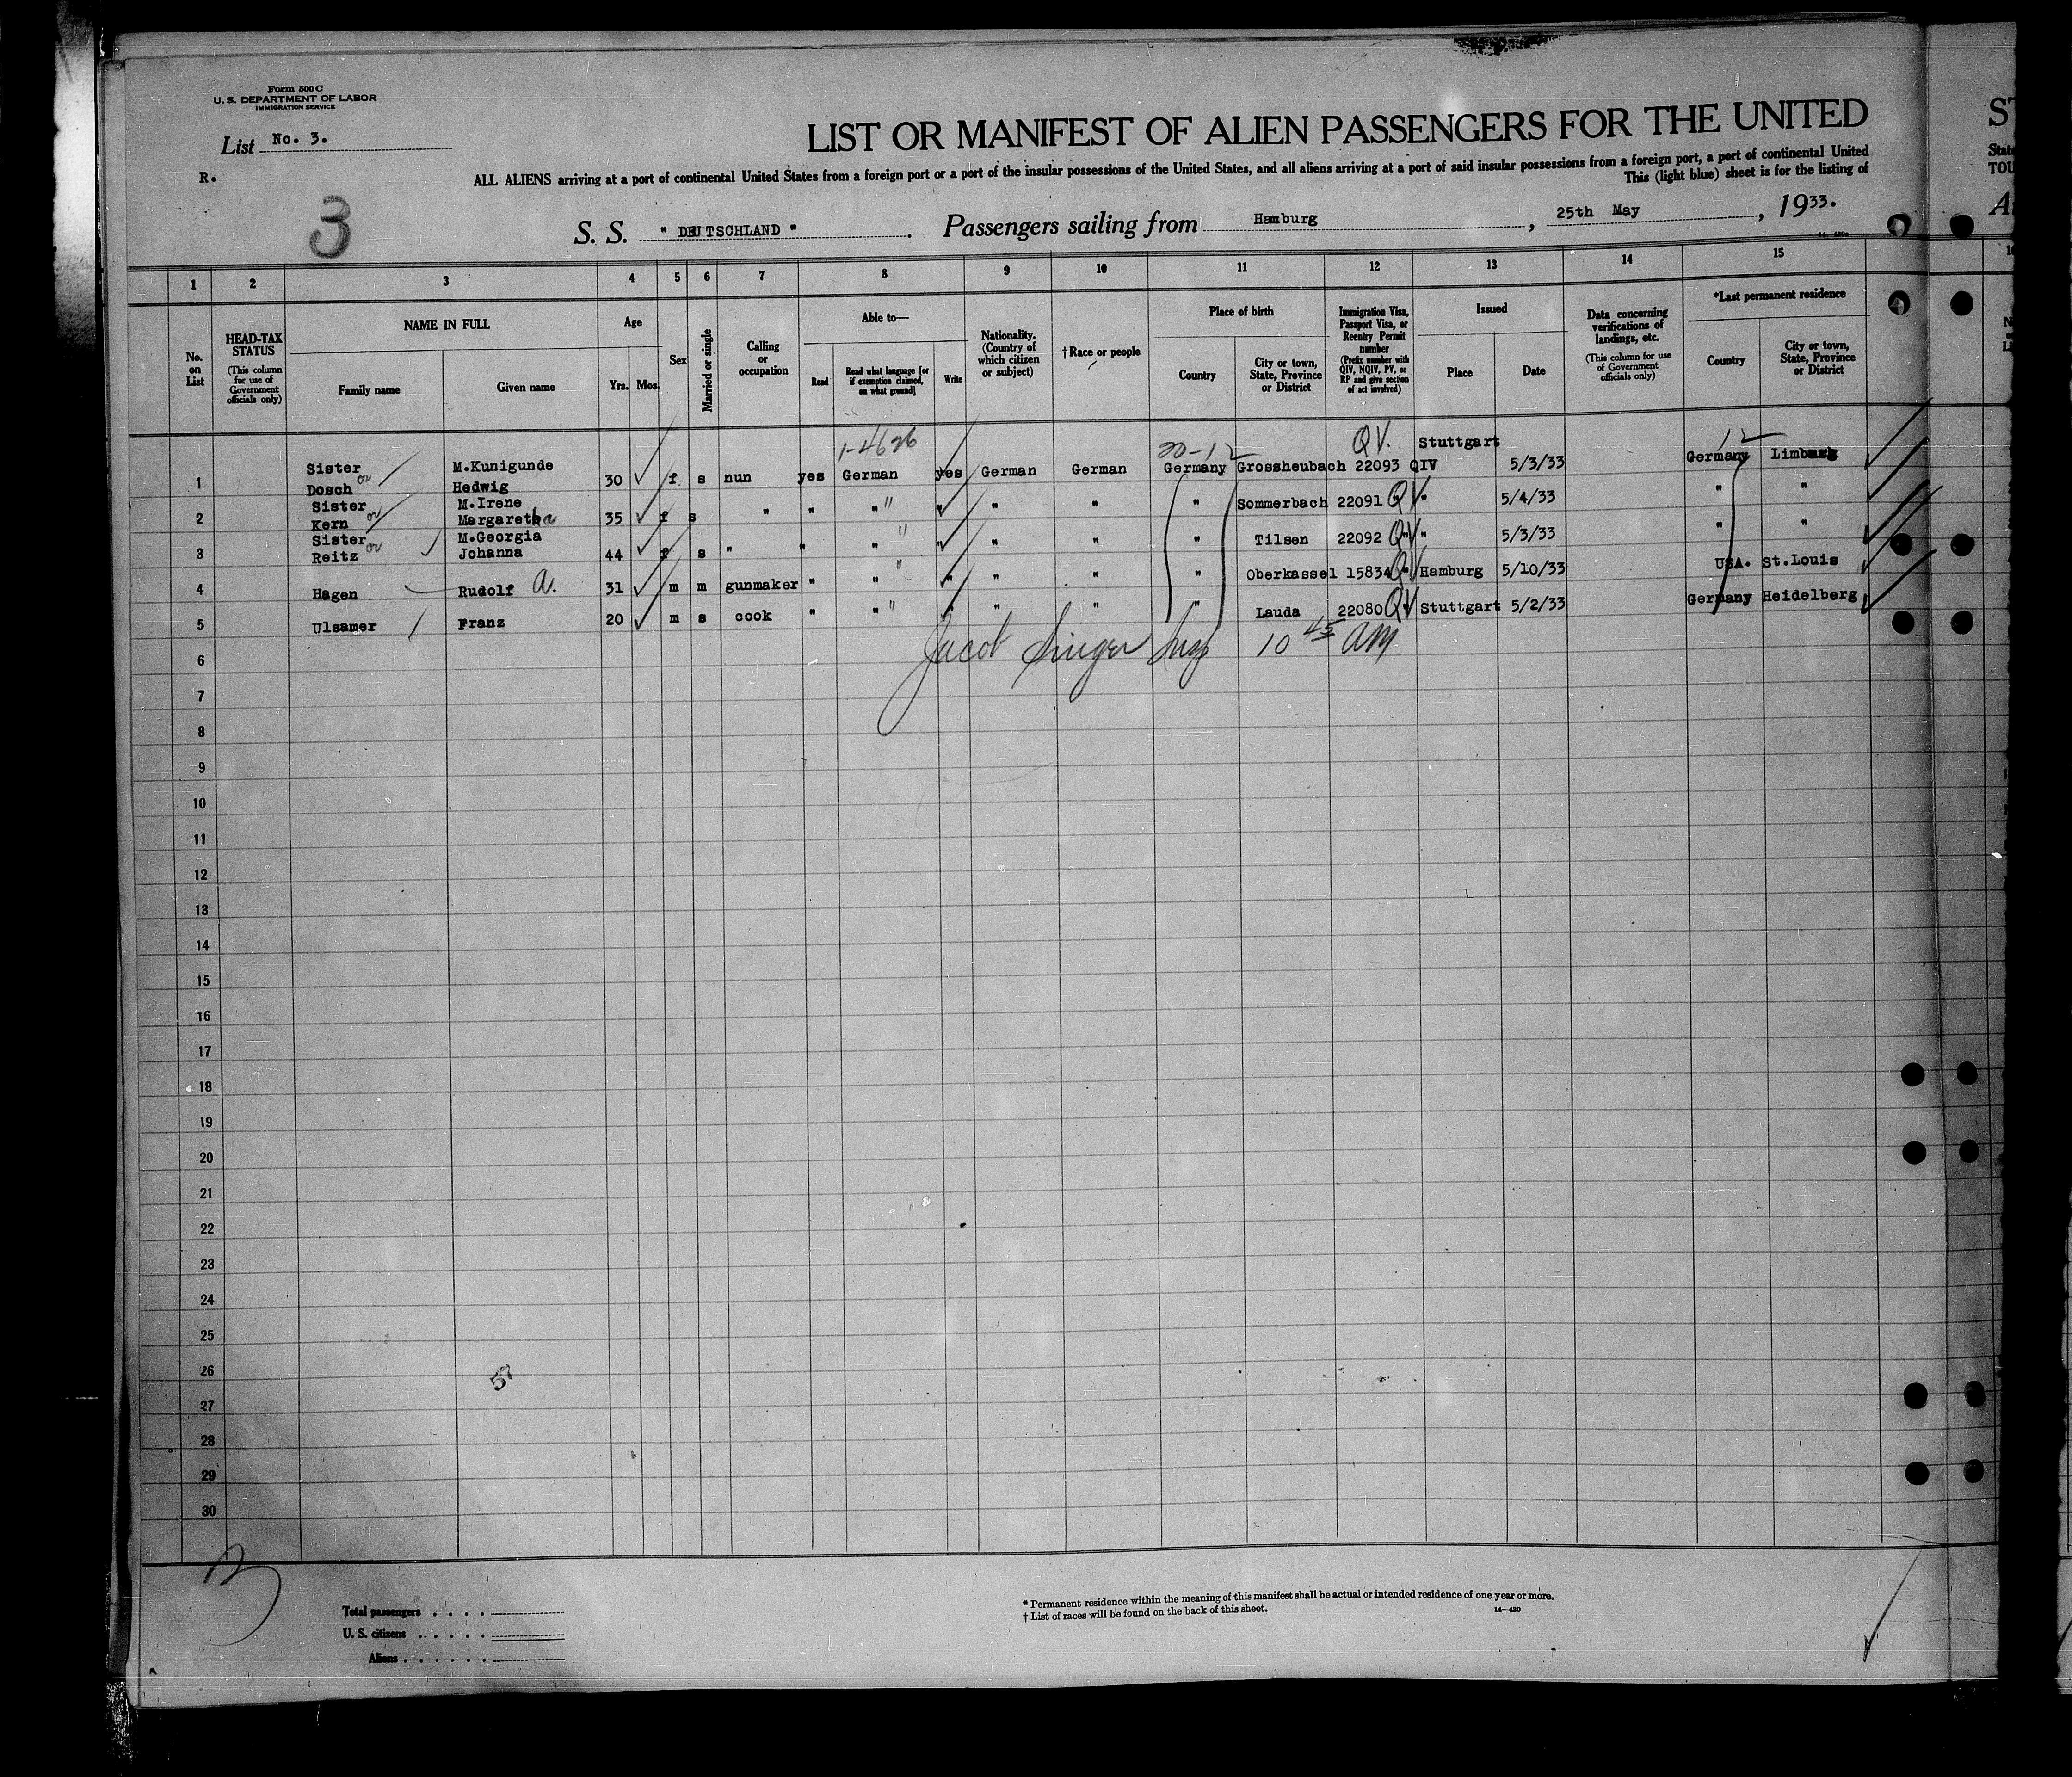 Form 500 C
U. S. DEPARTMENT OF LABOR
IMMIGRATION SERVICE
List No. 3.
R.
3
LIST OR MANIFEST OF ALIEN PASSENGERS FOR THE UNITED
ALL ALIENS arriving at a port of continental United States from a foreign port or a port of the insular possessions of the United States, and all aliens arriving at a port of said insular possessions from a foreign port, a port of continental United
This (light blue) sheet is for the listing of
S. S. " DEUTSCHLAND " . Passengers sailing from Hamburg , 25th May , 1933.
1 2 3 4 5 6 7 8 9 10 11 12 13 14 15
No. on List
HEAD-TAX STATUS (This column for use of Government officials only)
NAME IN FULL
Family name Given name
Age
Yrs. Mos.
Sex
Married or single
Calling or occupation
Able to—
Read Read what language [or if exemption claimed, on what ground] Write
Nationality. (Country of which citizen or subject)
† Race or people
Place of birth
Country City or town, State, Province or District
Immigration Visa, Passport Visa, or Reentry Permit number (Prefix number with QIV, NQIV, PV, or RP and give section of act involved)
Issued
Place Date
Data concerning verifications of landings, etc. (This column for use of Government officials only)
*Last permanent residence
Country City or town, State, Province or District
1-4626 20-12 QV. Stuttgart 12
1 Sister or Dosch M.Kunigunde Hedwig 30 f s nun yes German yes German German Germany Grossheubach 22093 QIV 5/3/33 Germany Limburg
2 Sister or Kern M.Irene Margaretha 35 f s " " " " " " " Sommerbach 22091 QV " 5/4/33 " "
3 Sister or Reitz M.Georgia Johanna 44 f s " " " " " " " Tilsen 22092 QV " 5/3/33 " "
4 Hagen Rudolf A. 31 m m gunmaker " " " " " " Oberkassel 15834 QV Hamburg 5/10/33 USA. St.Louis
5 Ulsamer Franz 20 m s cook " " " " " " Lauda 22080 QV Stuttgart 5/2/33 Germany Heidelberg
Jacob Singer Insp 10 45 AM
6
7
8
9
10
11
12
13
14
15
16
17
18
19
20
21
22
23
24
25
26
27
28
29
30
Total passengers
U. S. citizens
Aliens
* Permanent residence within the meaning of this manifest shall be actual or intended residence of one year or more.
† List of races will be found on the back of this sheet. 14—430